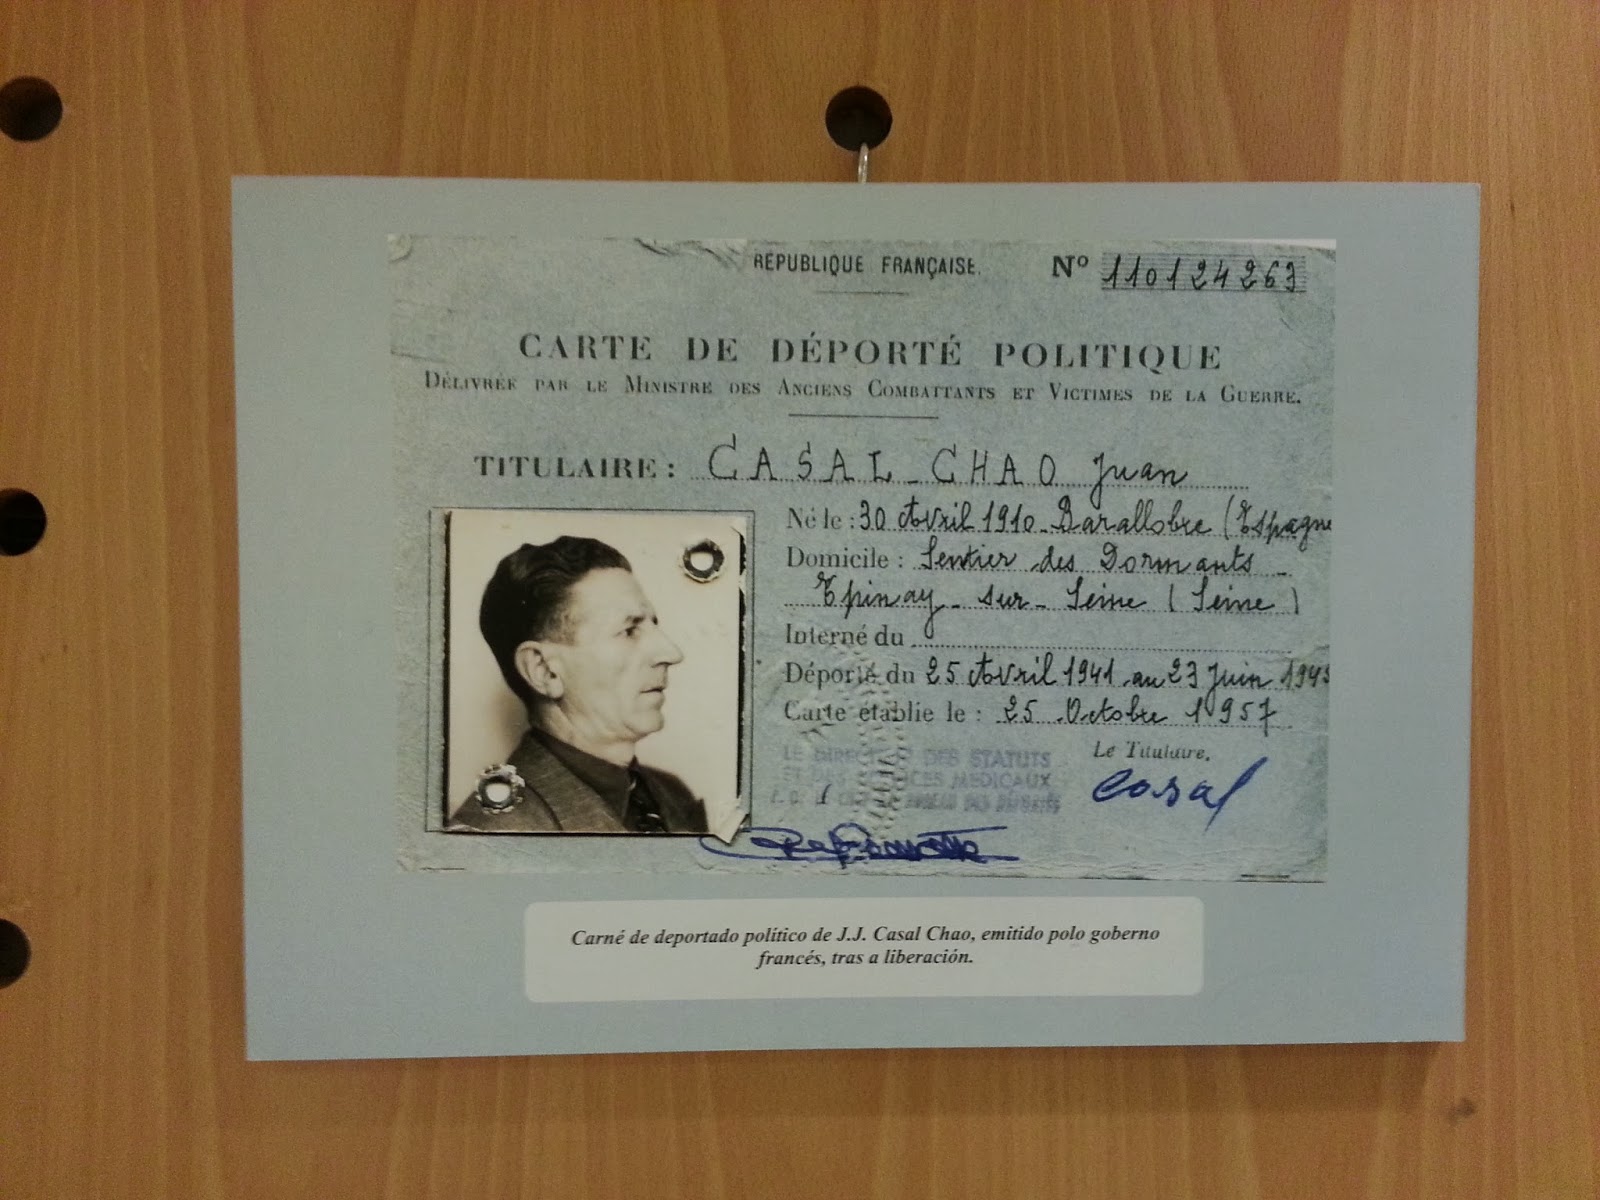 RÉPUBLIQUE FRANÇAISE. Nº 110124263
CARTE DE DÉPORTÉ POLITIQUE
DÉLIVRÉE PAR LE MINISTRE DES ANCIENS COMBATTANTS ET VICTIMES DE LA GUERRE.
TITULAIRE : CASAL - CHAO Juan
Né le : 30 Avril 1910 - Barallobre (Espagne
Domicile : Sentier des Dormants -
Epinay - sur - Seine (Seine)
Interné du
Déporté du 25 Avril 1941 au 23 Juin 1945
Carte établie le : 25 Octobre 1957
LE DIRECTEUR DES STATUTS
ET DES SERVICES MEDICAUX
Le Titulaire,
Casal
Carné de deportado político de J.J. Casal Chao, emitido polo goberno
francés, tras a liberación.